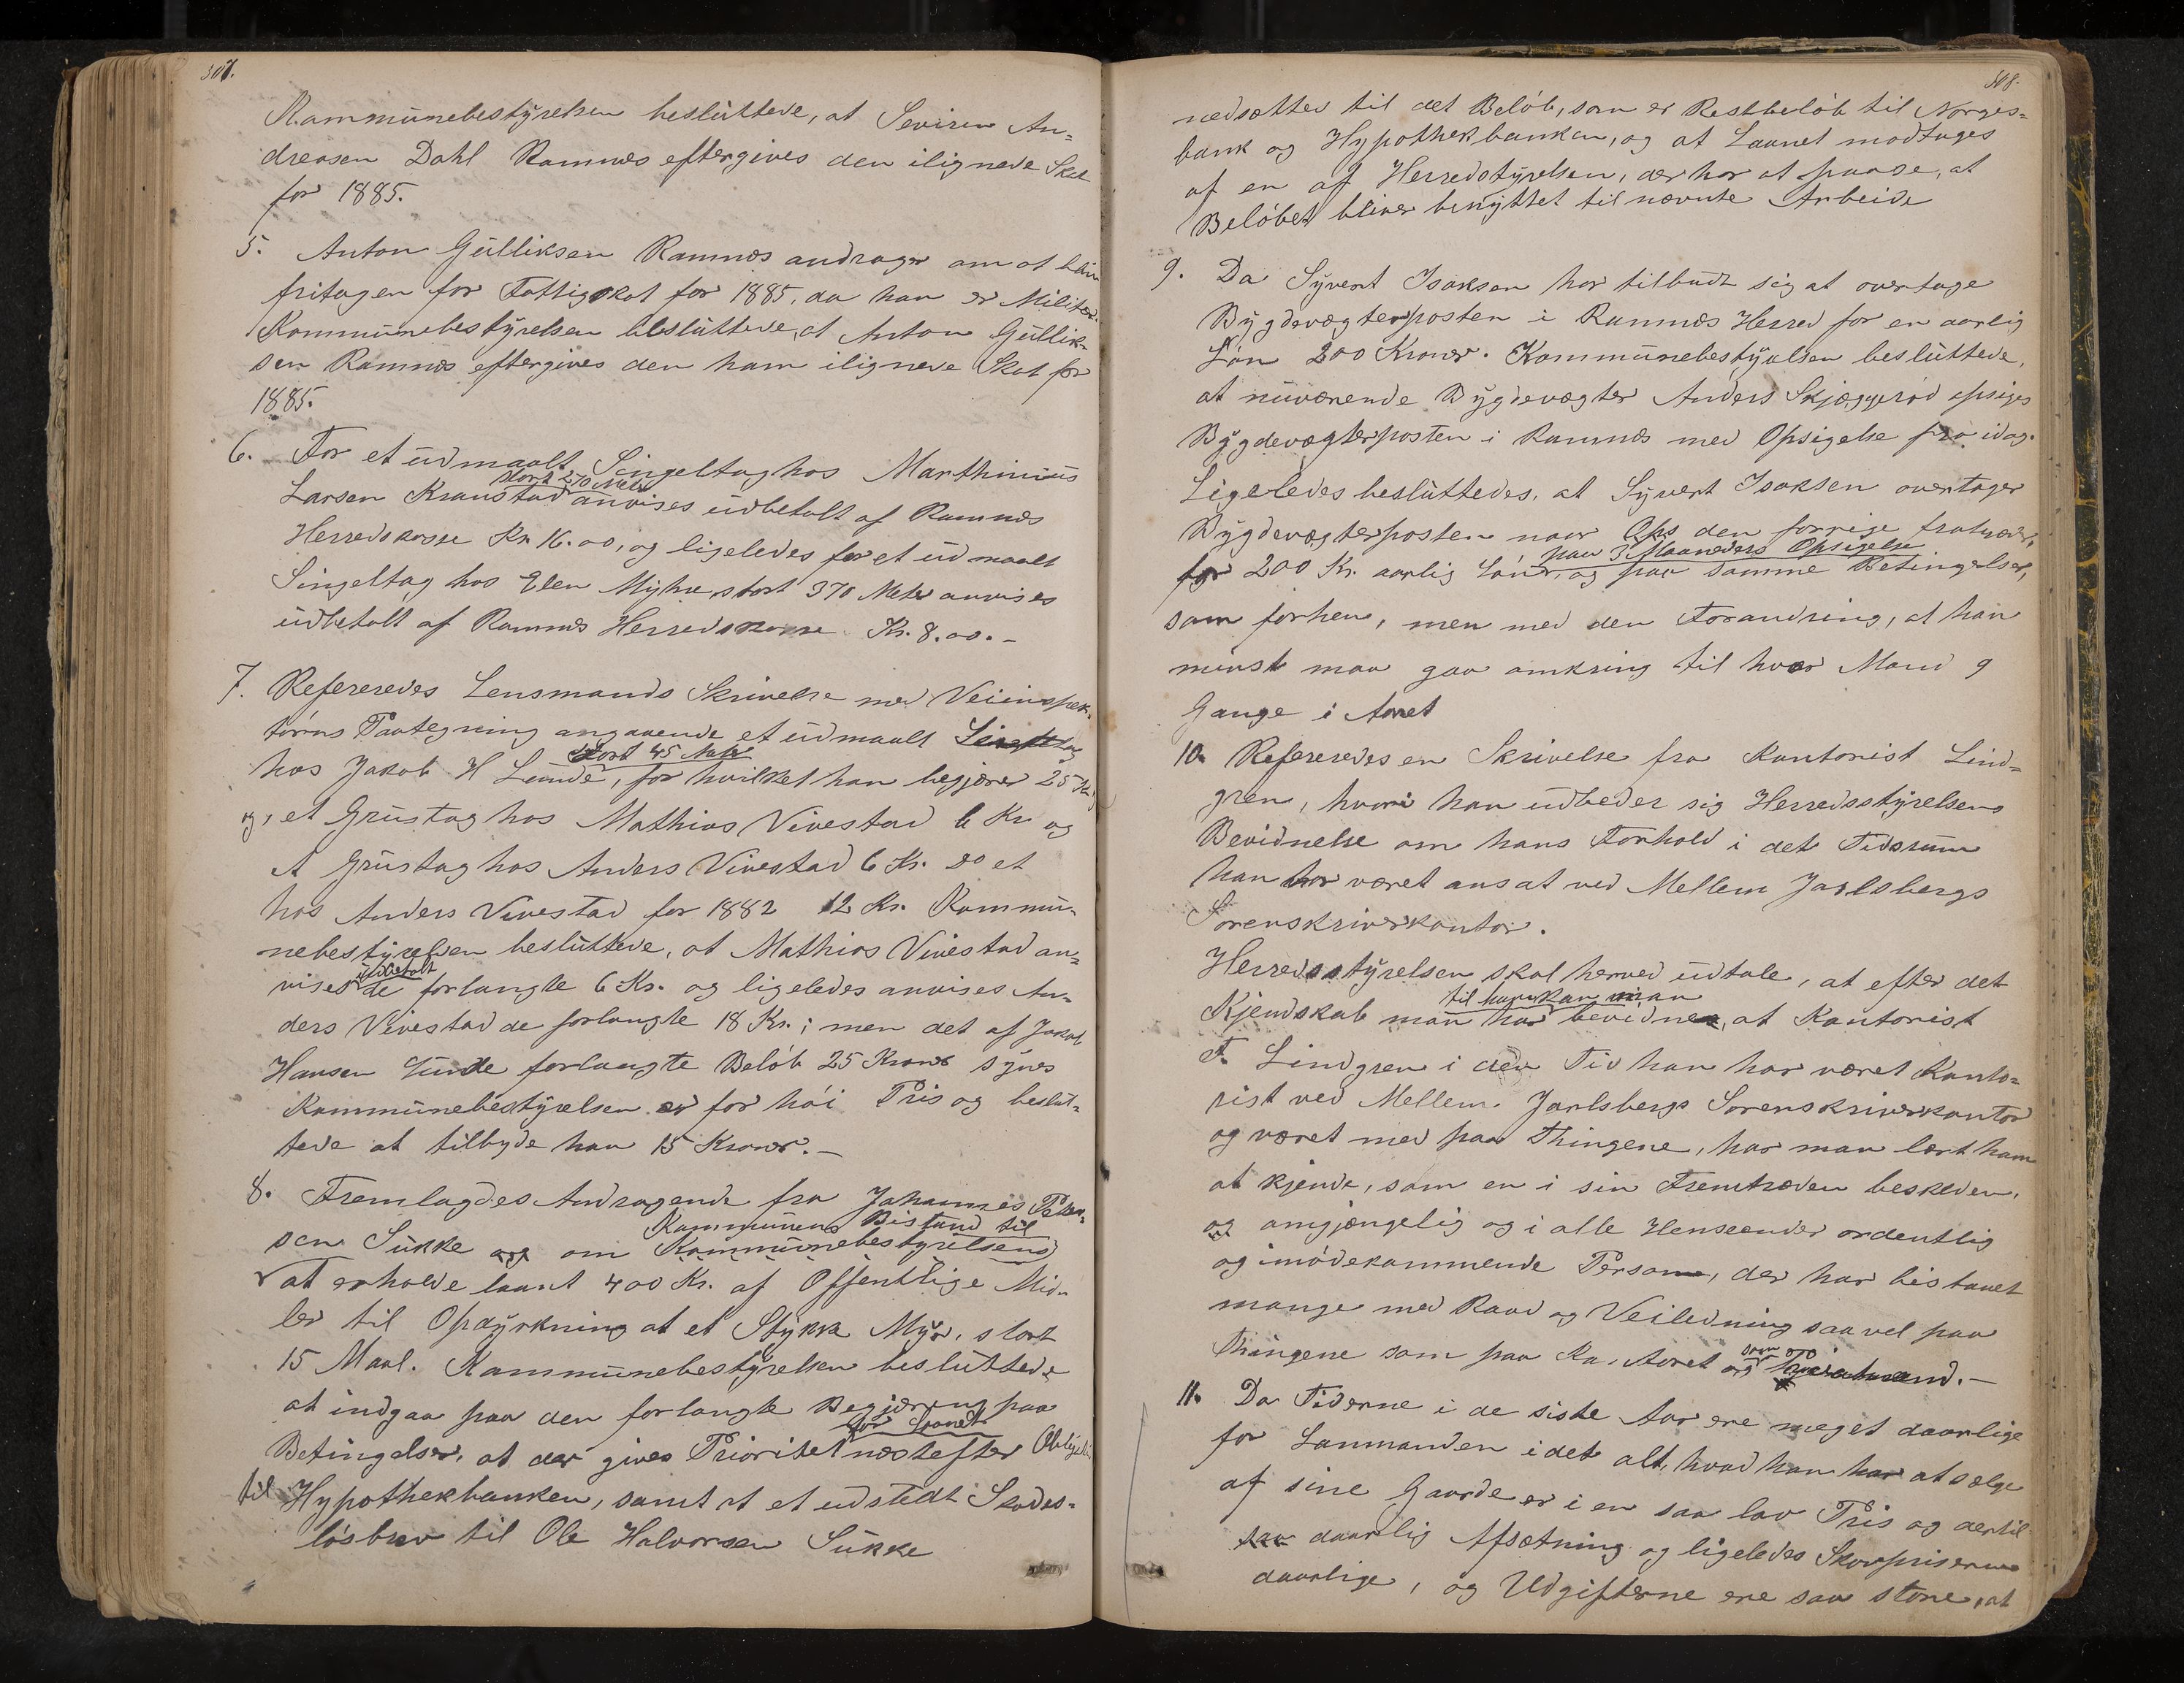 307.
Kommunebestyrelsen besluttede, at Sevirin An-
dreasen Dahl Ramnes eftergives den ilignede Skat
for 1885.
5. Anton Gulliksen Ramnes andrager om at blive
fritagen for Fattigskat for 1885, da han er Militær.
Kommunebestyrelsen besluttede, at Anton Gullik-
sen Ramnes eftergives den ham ilignede Skat for
1885.
6. For et udmaalt Singeltag hos Marthinius
stort 270 Meter
Larsen Kraustad anvises udbetalt af Ramnes
Herredskasse Kr. 16.00, og ligeledes for et udmaalt
Singeltag hos Elen Myhre stort 370 Meter anvises
udbetalt af Ramnes Herredskasse Kr. 8.00.-
7. Refereredes Lensmands Skrivelse med Veiinspek-
tørens Paategning angaaende et udmaalt
stort 45 Meter
hos Jakob H Lunde, for hvilket han begjærer 25 Kr,
og, et Grustag hos Mathias Vivestad 6 Kr og
et Grustag hos Anders Vivestad 6 Kr. do et
hos Anders Vivestad for 1882 12 Kr. Kommu-
nebestyrelsen besluttede, at Mathias Vivestad an-
udbetalt
vises de forlangte 6 Kr. og ligeledes anvises An-
ders Vivestad de forlangte 18 Kr.; men det af Jakob
Hansen Lunde forlangte Beløb 25 Kroner synes
Kommunebestyrelsen er for høi Pris og beslut-
tede at tilbyde han 15 Kroner.-
8. Fremlagdes Andragende fra Johannes Peter-
Kommunens Bistand til
sen Sukke og om Kommunebestyrelsens
at erholde laant 400 Kr. af Offentlige Mid-
ler til Opdyrkning at et Stykke Myr, stort
15 Maal. Kommunebestyrelsen besluttede
at indgaa paa den forlangte Begjæring paa
for Laanet
Betingelser, at der gives Prioritet næstefter
til Hypothekbanken, samt at et udstedt Skades-
løsbrev til Ole Halvorsen Sukke
308.
nedsættes til det Beløb, som er Restbeløb til Norges-
bank og Hypothekbanken, og at Laanet modtages
af en af Herredstyrelsen, der har at paase, at
Beløbet bliver benyttet til nævnte Arbeide
9. Da Syvert Isaksen har tilbudt sig at overtage
Bygdevægterposten i Ramnes Herred for en aarlig
Løn 200 Kroner. Kommunebestyrelsen besluttede,
at nuværende Bygdevægter Anders Skjæggerød opsiges
Bygdevægterposten i Ramnes med Opsigelse fra idag.
Ligeledes besluttedes, at Syvert Isaksen overtager
Bygdevægterposten naar Ops den forrige fratræder,
paa 3 Maaneders Opsigelse
for 200 Kr. aarlig Løn, og paa samme Betingelser,
som forhen, men med den Forandring, at han
minst maa gaa omkring til hver Mand 9
Gange i Aaret
10. Refereredes en Skrivelse fra Kontorist Lind-
gren, hvori han udbeder sig Herredsstyrelsens
Bevidnelse om hans Forhold i det Tidsrum
han har været ansat ved Mellem Jarlsbergs
Sorenskriverkontor.
Herredsstyrelsen skal herved udtale, at efter det
til ham kan man
Kjendskab man har bevidne, at Kontorist
F. Lindgren i den Tid han har været Konto-
rist ved Mellem Jarlsbergs Sorenskriverkontor
og været med paa Thingene, har man lært ham
at kjende, som en i sin Fremtræden beskeden,
og omgjængelig og i alle Henseender ordentlig
og imødekommende Person, der har bistaaet
mange med Raad og Veiledning saavel paa
Thingene som paa Kontoret
11. Da Tiderne i de siste Aar ere meget daarlige
for Lanmanden idet alt, hvad han har at sælge
af sine Gaarde er i en saa lav Pris og dertil
saa daarlig Afsætning og ligeledes Skovpriserne
daarlige, og Udgifterne ere saa store, at